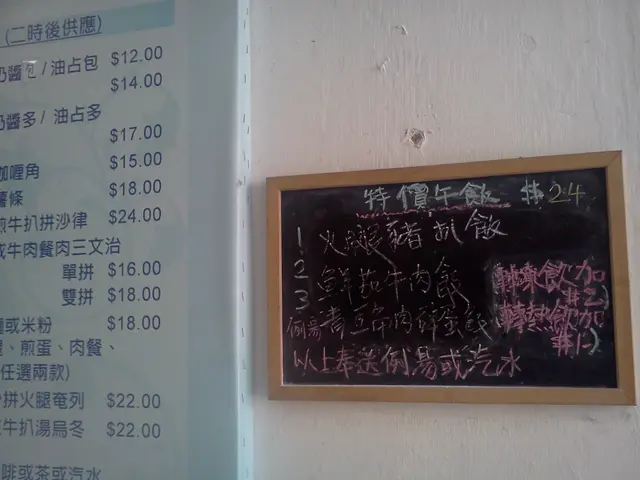 (二時後供應)
奶醬包 / 油占包 $12.00
$14.00
奶醬多 / 油占多
$17.00
咖喱角 $15.00
薯條 $18.00
煎牛扒拼沙律 $24.00
或牛肉餐肉三文治
單拼 $16.00
雙拼 $18.00
或米粉 $18.00
、煎蛋、肉餐、
任選兩款)
拼火腿奄列 $22.00
牛扒湯烏冬 $22.00
啡或茶或汽水
特價午飯 $24
1 火腿豬扒飯
2 鮮茄牛肉飯
3 牛肉 飯
例湯
以上奉送例湯或汽水
轉凍飲加
$2)
轉熱飲加
$1)